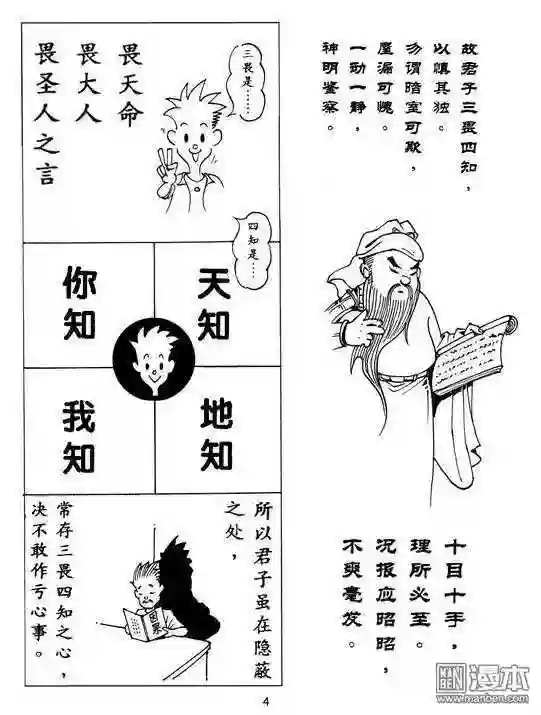 故君子三畏四知，
以慎其独。
勿谓暗室可欺，
屋漏可愧，
一动一静，
神明鉴察。
十目十手，
理所必至。
况报应昭昭，
不爽毫发。
三畏是……
畏天命
畏大人
畏圣人之言
四知是……
天知
地知
你知
我知
所以君子虽在隐蔽
之处，
常存三畏四知之心，
决不敢作亏心事。
因果
4
MAN
BEN
漫本
www.manben.com